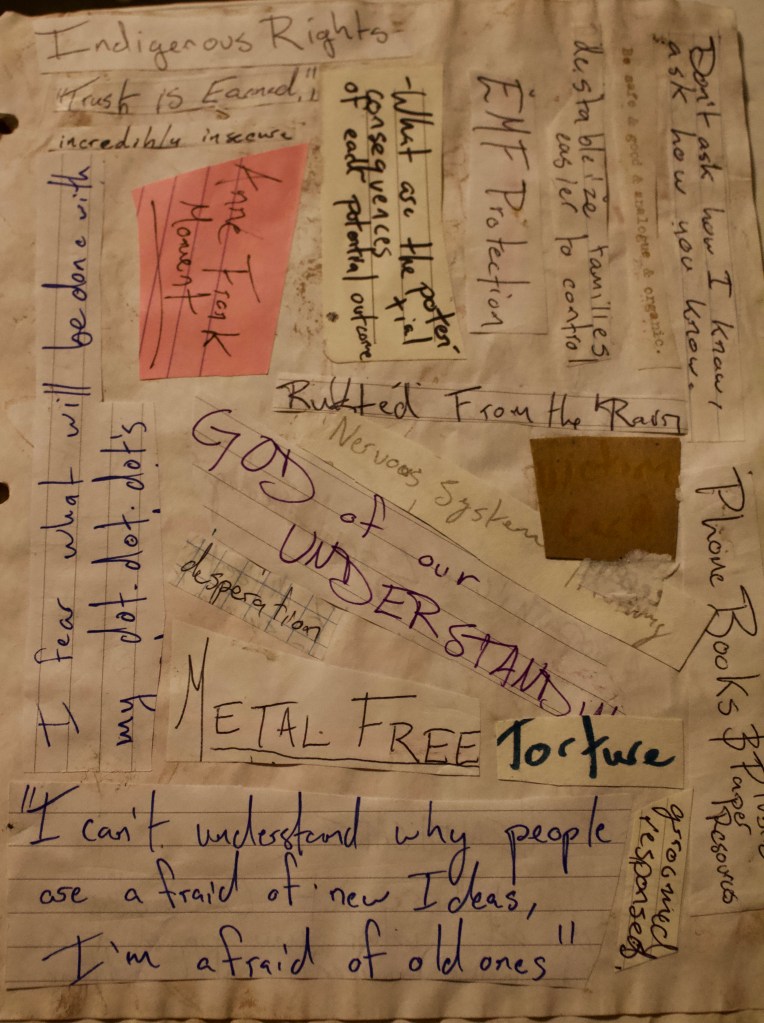 Indigenous Rights
"Trust is Earned,"
incredibly insecure
Anne Frank
Moment
-What are the poten-
tial
consequences
of each potential outcome
EMF Protection
destableize families
easier to control
Be safe & good & analogue & organic.
Don't ask how I know,
ask how you know.
I fear what will be done with
my dot.dot.dot's
From the Rain
Nervous System
GOD of our
UNDERSTAND
desperation
METAL FREE
Torture
Phone Books &
Paper
Resources
"I can't understand why people
are afraid of new Ideas,
I'm afraid of old ones"
groomed
responses.